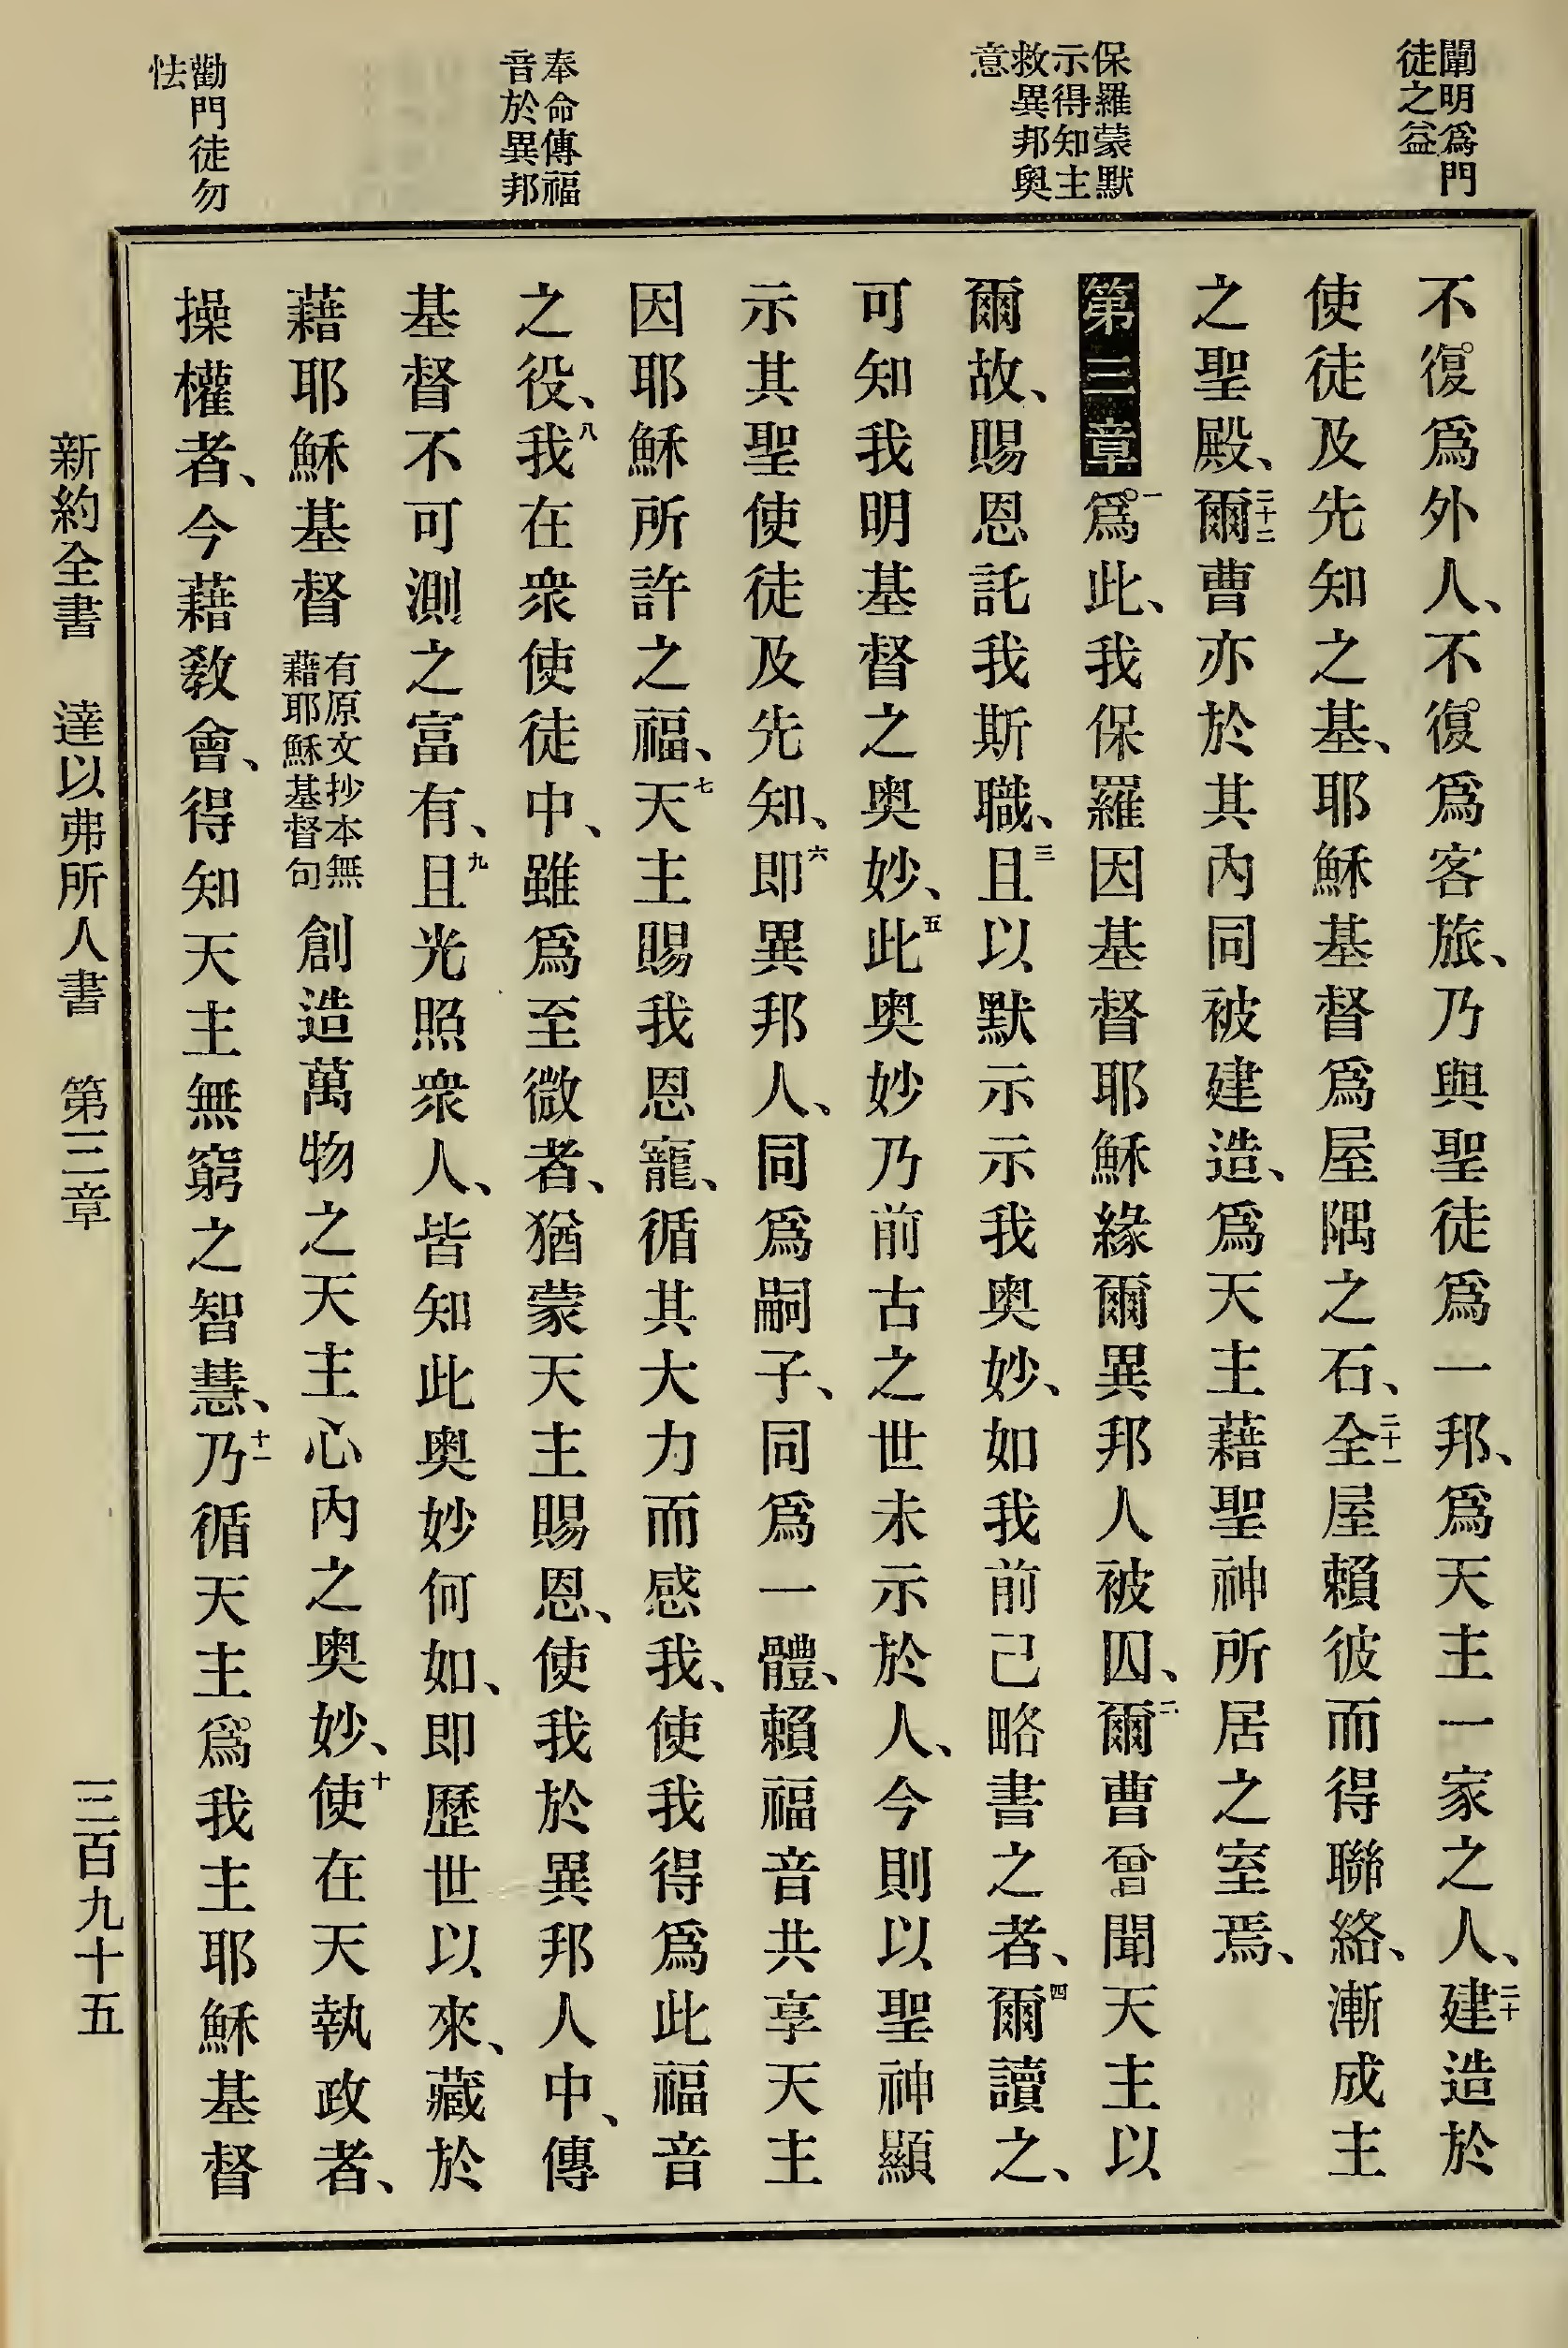 闡明爲門
徒之益
保羅蒙默
示得知主
救異邦奧
意
奉命傳福
音於異邦
勸門徒勿
怯
不復爲外人、不復爲客旅、乃與聖徒爲一邦、爲天主一家之人、二十建造於
使徒及先知之基、耶穌基督爲屋隅之石、二十一全屋賴彼而得聯絡、漸成主
之聖殿、二十二爾曹亦於其內同被建造、爲天主藉聖神所居之室焉、
第三章一爲此、我保羅因基督耶穌緣爾異邦人被囚、二爾曹曾聞天主以
爾故、賜恩託我斯職、三且以默示示我奧妙、如我前已略書之者、四爾讀之、
可知我明基督之奧妙、五此奧妙乃前古之世未示於人、今則以聖神顯
示其聖使徒及先知、六即異邦人、同爲嗣子、同爲一體、賴福音共享天主
因耶穌所許之福、七天主賜我恩寵、循其大力而感我、使我得爲此福音
之役、八我在衆使徒中、雖爲至微者、猶蒙天主賜恩、使我於異邦人中、傳
基督不可測之富有、九且光照衆人、皆知此奧妙何如、即歷世以來、藏於
藉耶穌基督有原文抄本無藉耶穌基督句創造萬物之天主心內之奧妙、十使在天執政者、
操權者、今藉教會、得知天主無窮之智慧、十一乃循天主爲我主耶穌基督
新約全書 達以弗所人書 第三章 三百九十五